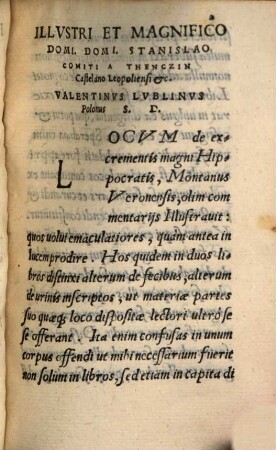 ILLVSTRI ET MAGNIFICO
DOMI. DOMI. STANISLAO
COMITI A THENCZIN
Castelano Leopoliensi &c.
VALENTINVS LVBLINVS
Polonus S. P.
LOCVM de ex-
crementis magni Hip-
pocratis, Montanus
Veronensis, olim com-
mentarijs Illustrauit:
quos uolui emaculatiores, quàm antea in
lucem prodire. Hos quidem in duos li-
bros distinxi alterum de fecibus, alterum
de urinis inscriptos, ut materiæ partes
suo quæq; loco dispositæ lectori ultrò se
se offerant. Ita enim confusas in unum
corpus offendi ut mihi necessarium fuerit
non solum in libros, sed etiam in capita di